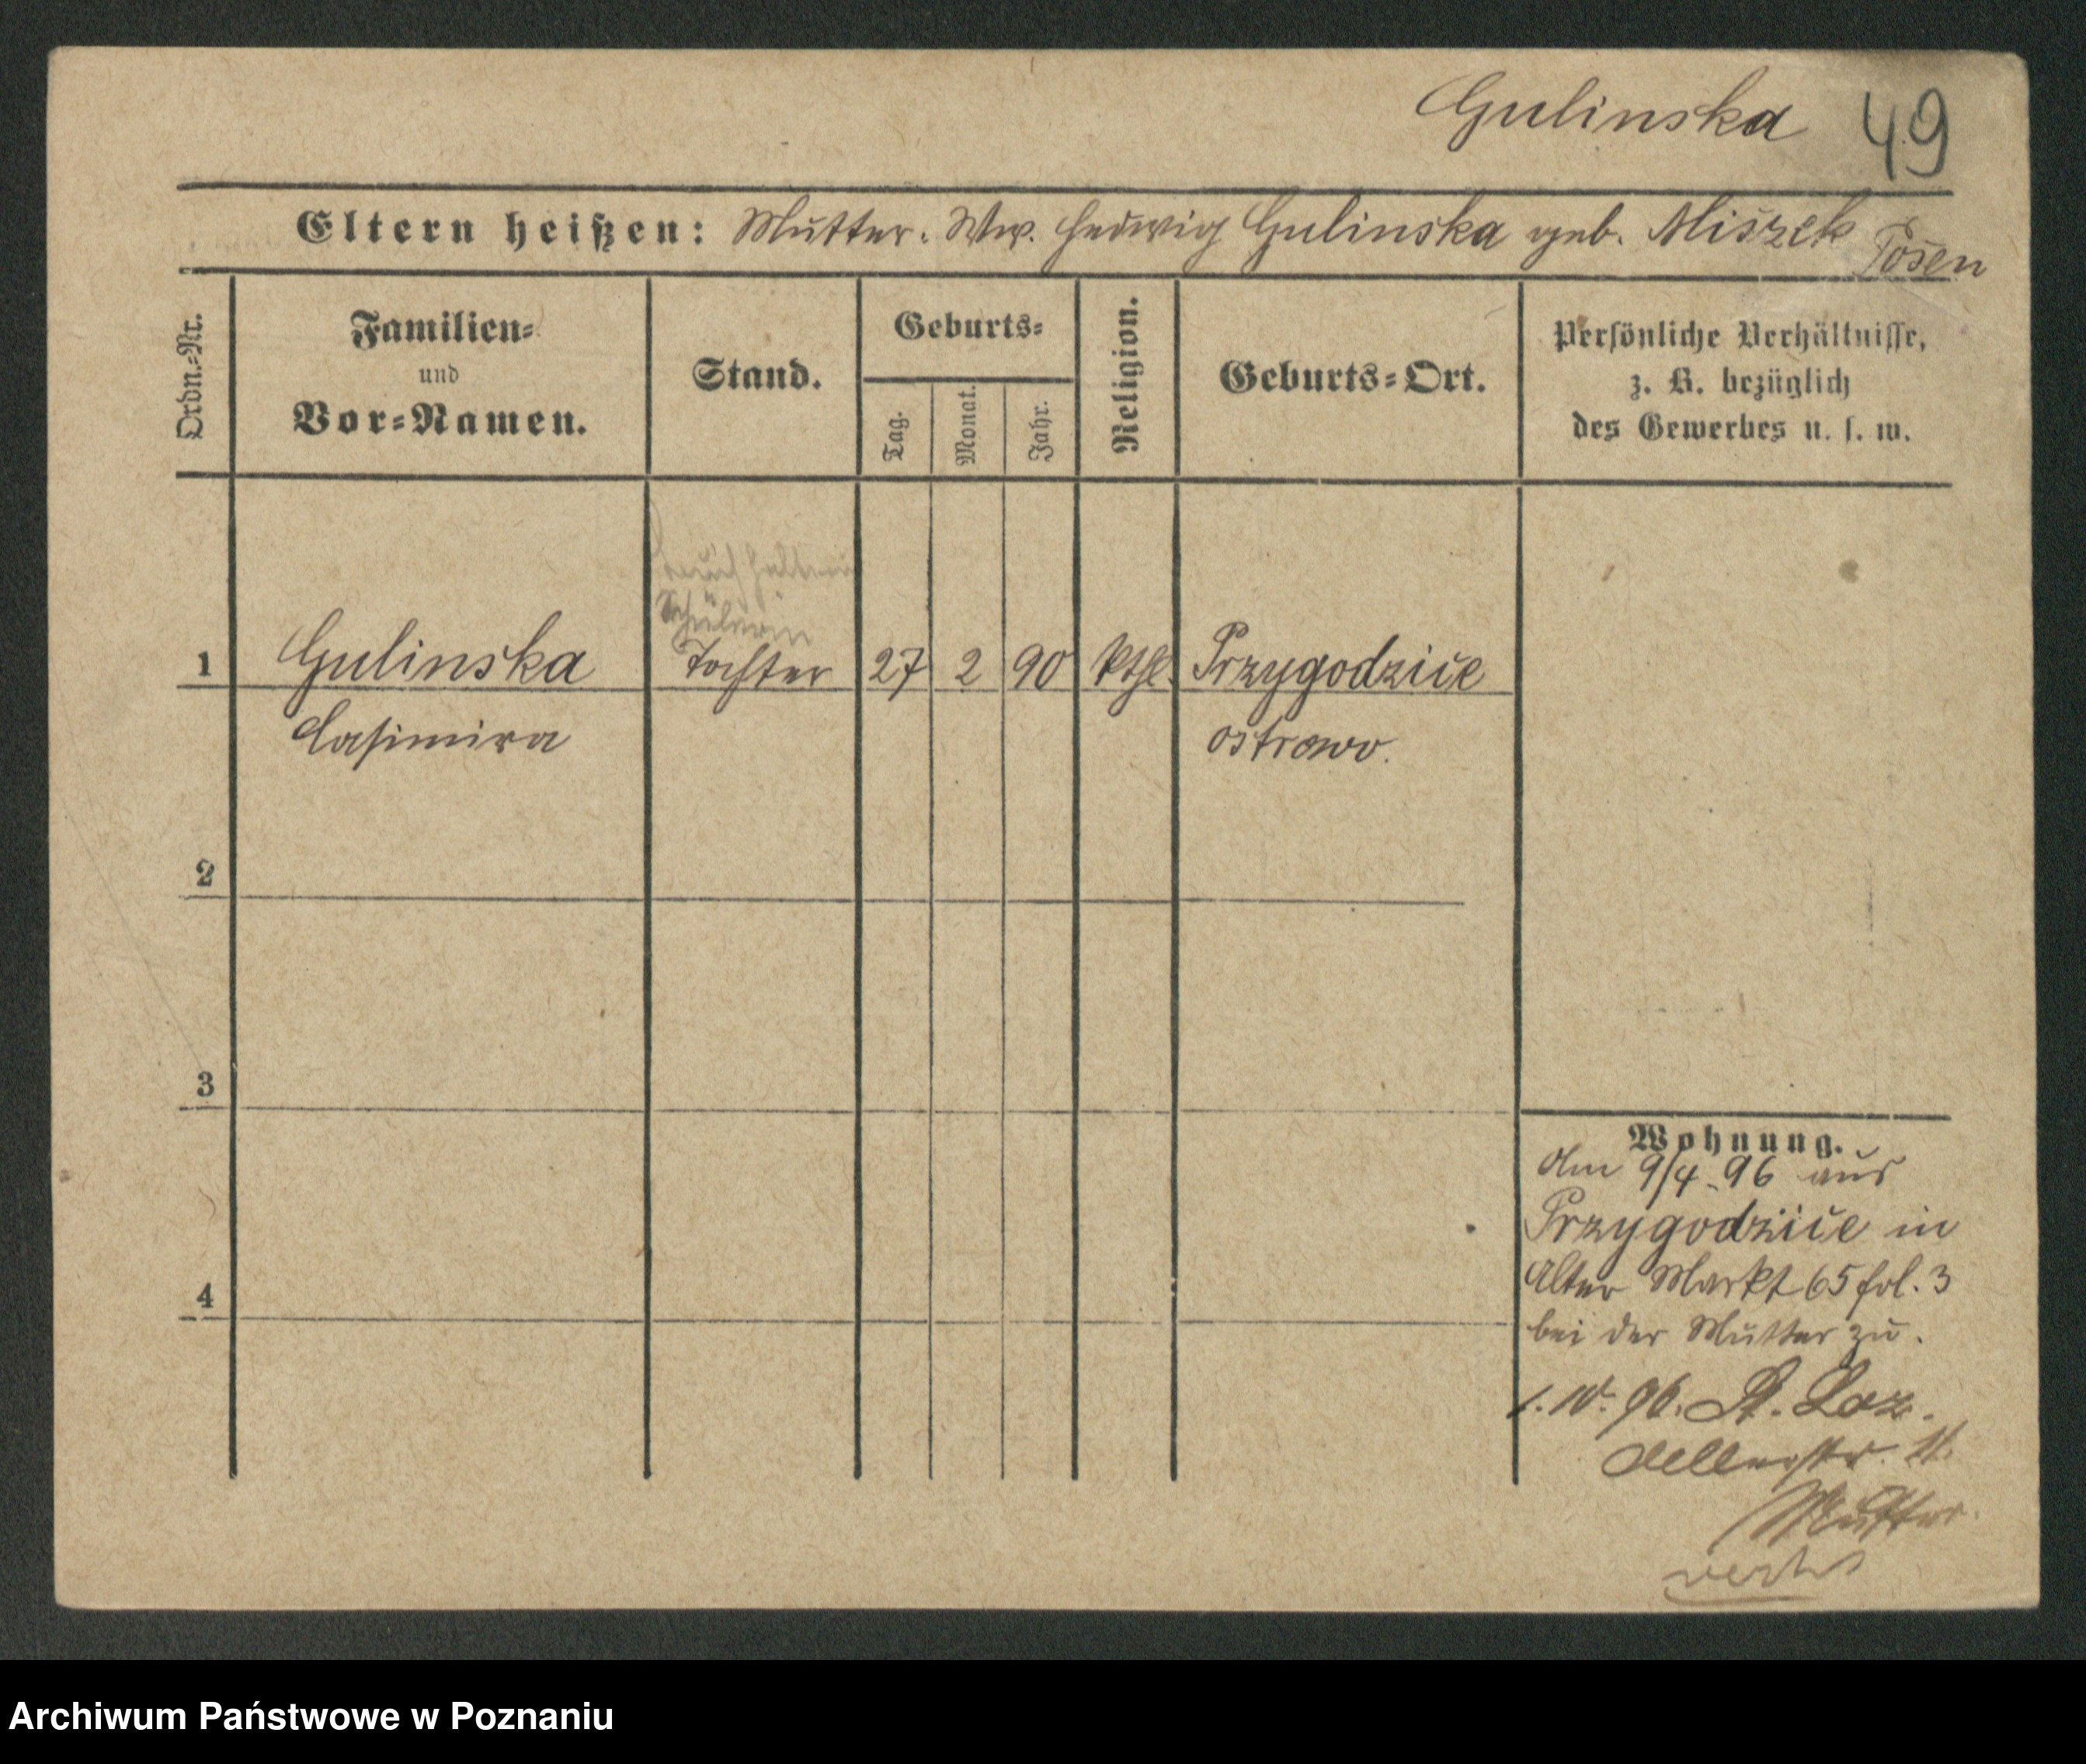 Gulinska 49
Eltern heißen: Mutter. Ww. Hedwig Gulinska geb. Miszek Posen
Ordn.=Nr.
Familien=
und
Vor=Namen.
Stand.
Geburts=
Tag.
Monat.
Jahr.
Religion.
Geburts=Ort.
Persönliche Verhältnisse,
z. B. bezüglich
des Gewerbes u. s. w.
Schülerin
1 Gulinska Tochter 27 2 90 kthl. Przygodzice
Casimira Ostrowo.
2
3
4
Wohnung.
Am 9/4. 96 aus
Przygodzice in
Alter Markt 65 fol. 3
bei der Mutter zu.
1. 10. 96. St. Laz.
Mutter.
Archiwum Państwowe w Poznaniu